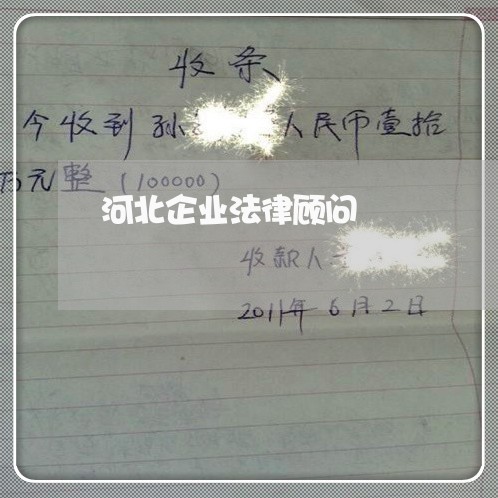 收条
今收到孙 人民币壹拾
万元整(100000)
河北企业法律顾问
收款人
2011年6月2日